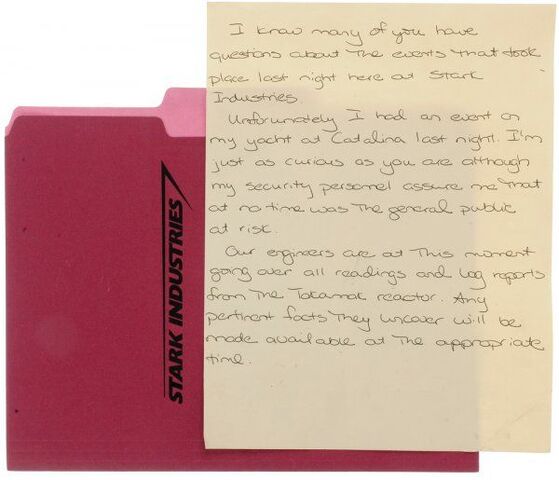 I know many of you have
questions about the events that took
place last night here at Stark
Industries.
Unforunately I had an event on
my yacht at Catalina last night. I'm
just as curious as you are although
my security personel assure me that
at no time was the general public
at risk.
Our engineers are at this moment
going over all readings and log reports
from the Tokamak reactor. Any
pertinent facts they uncover will be
made available at the appropriate
time.
STARK INDUSTRIES